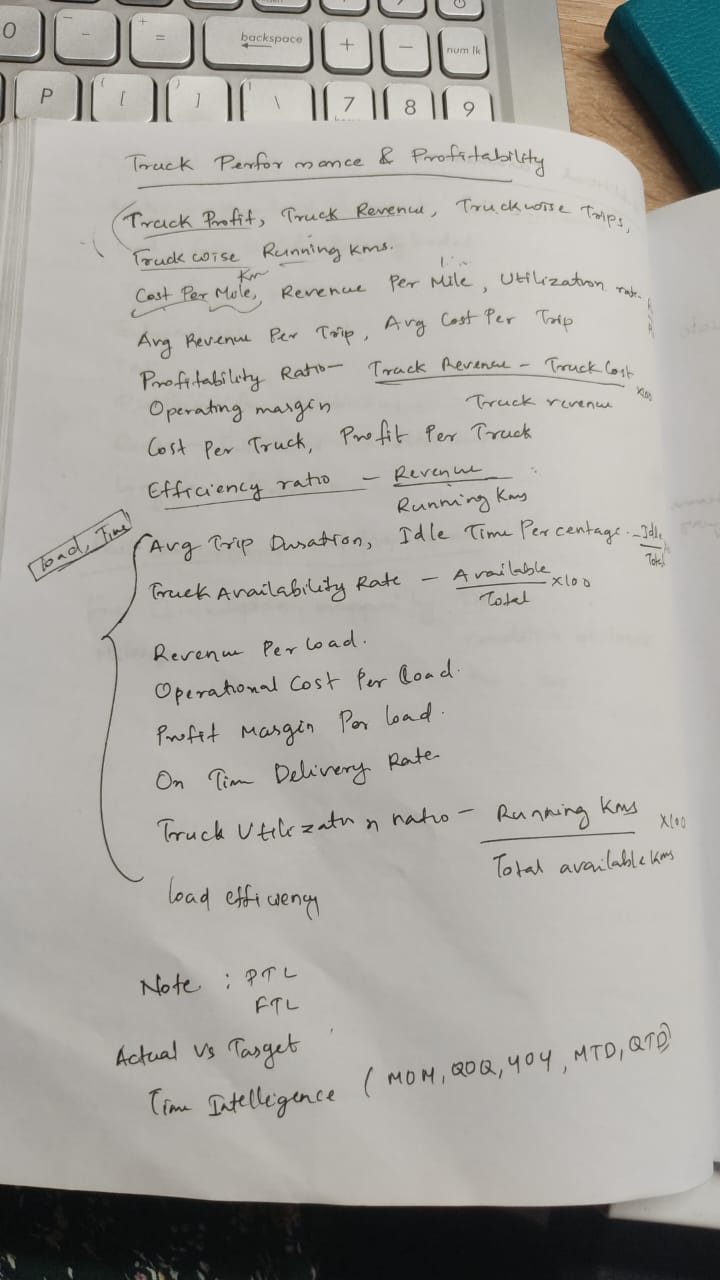 0 - + = backspace + - num lk
P { [ } ] | \ 7 8 9
Truck Performance & Profitability
Truck Profit, Truck Revenue, Truckwise Trips,
Truck wise Running Kms.
Km
Cost Per Mole, Revenue Per Mile, Utilization
Avg Revenue Per Trip, Avg Cost Per Trip
Profitability Ratio - Truck Revenue - Truck Cost x100
Operating margin Truck revenue
Cost Per Truck, Profit Per Truck
Efficiency ratio - Revenue
Running Kms
Load, Time
Avg Trip Duration, Idle Time Percentage - Idle
Total
Truck Availability Rate - Available x100
Total
Revenue Per load.
Operational Cost Per load.
Profit Margin Per load.
On Tim Delivery Rate
Truck Utilization ratio - Running Kms x100
Total available Kms
load efficiency
Note : PTL
FTL
Actual Vs Target
Time Intelligence (MOM, QOQ, YOY, MTD, QTD)